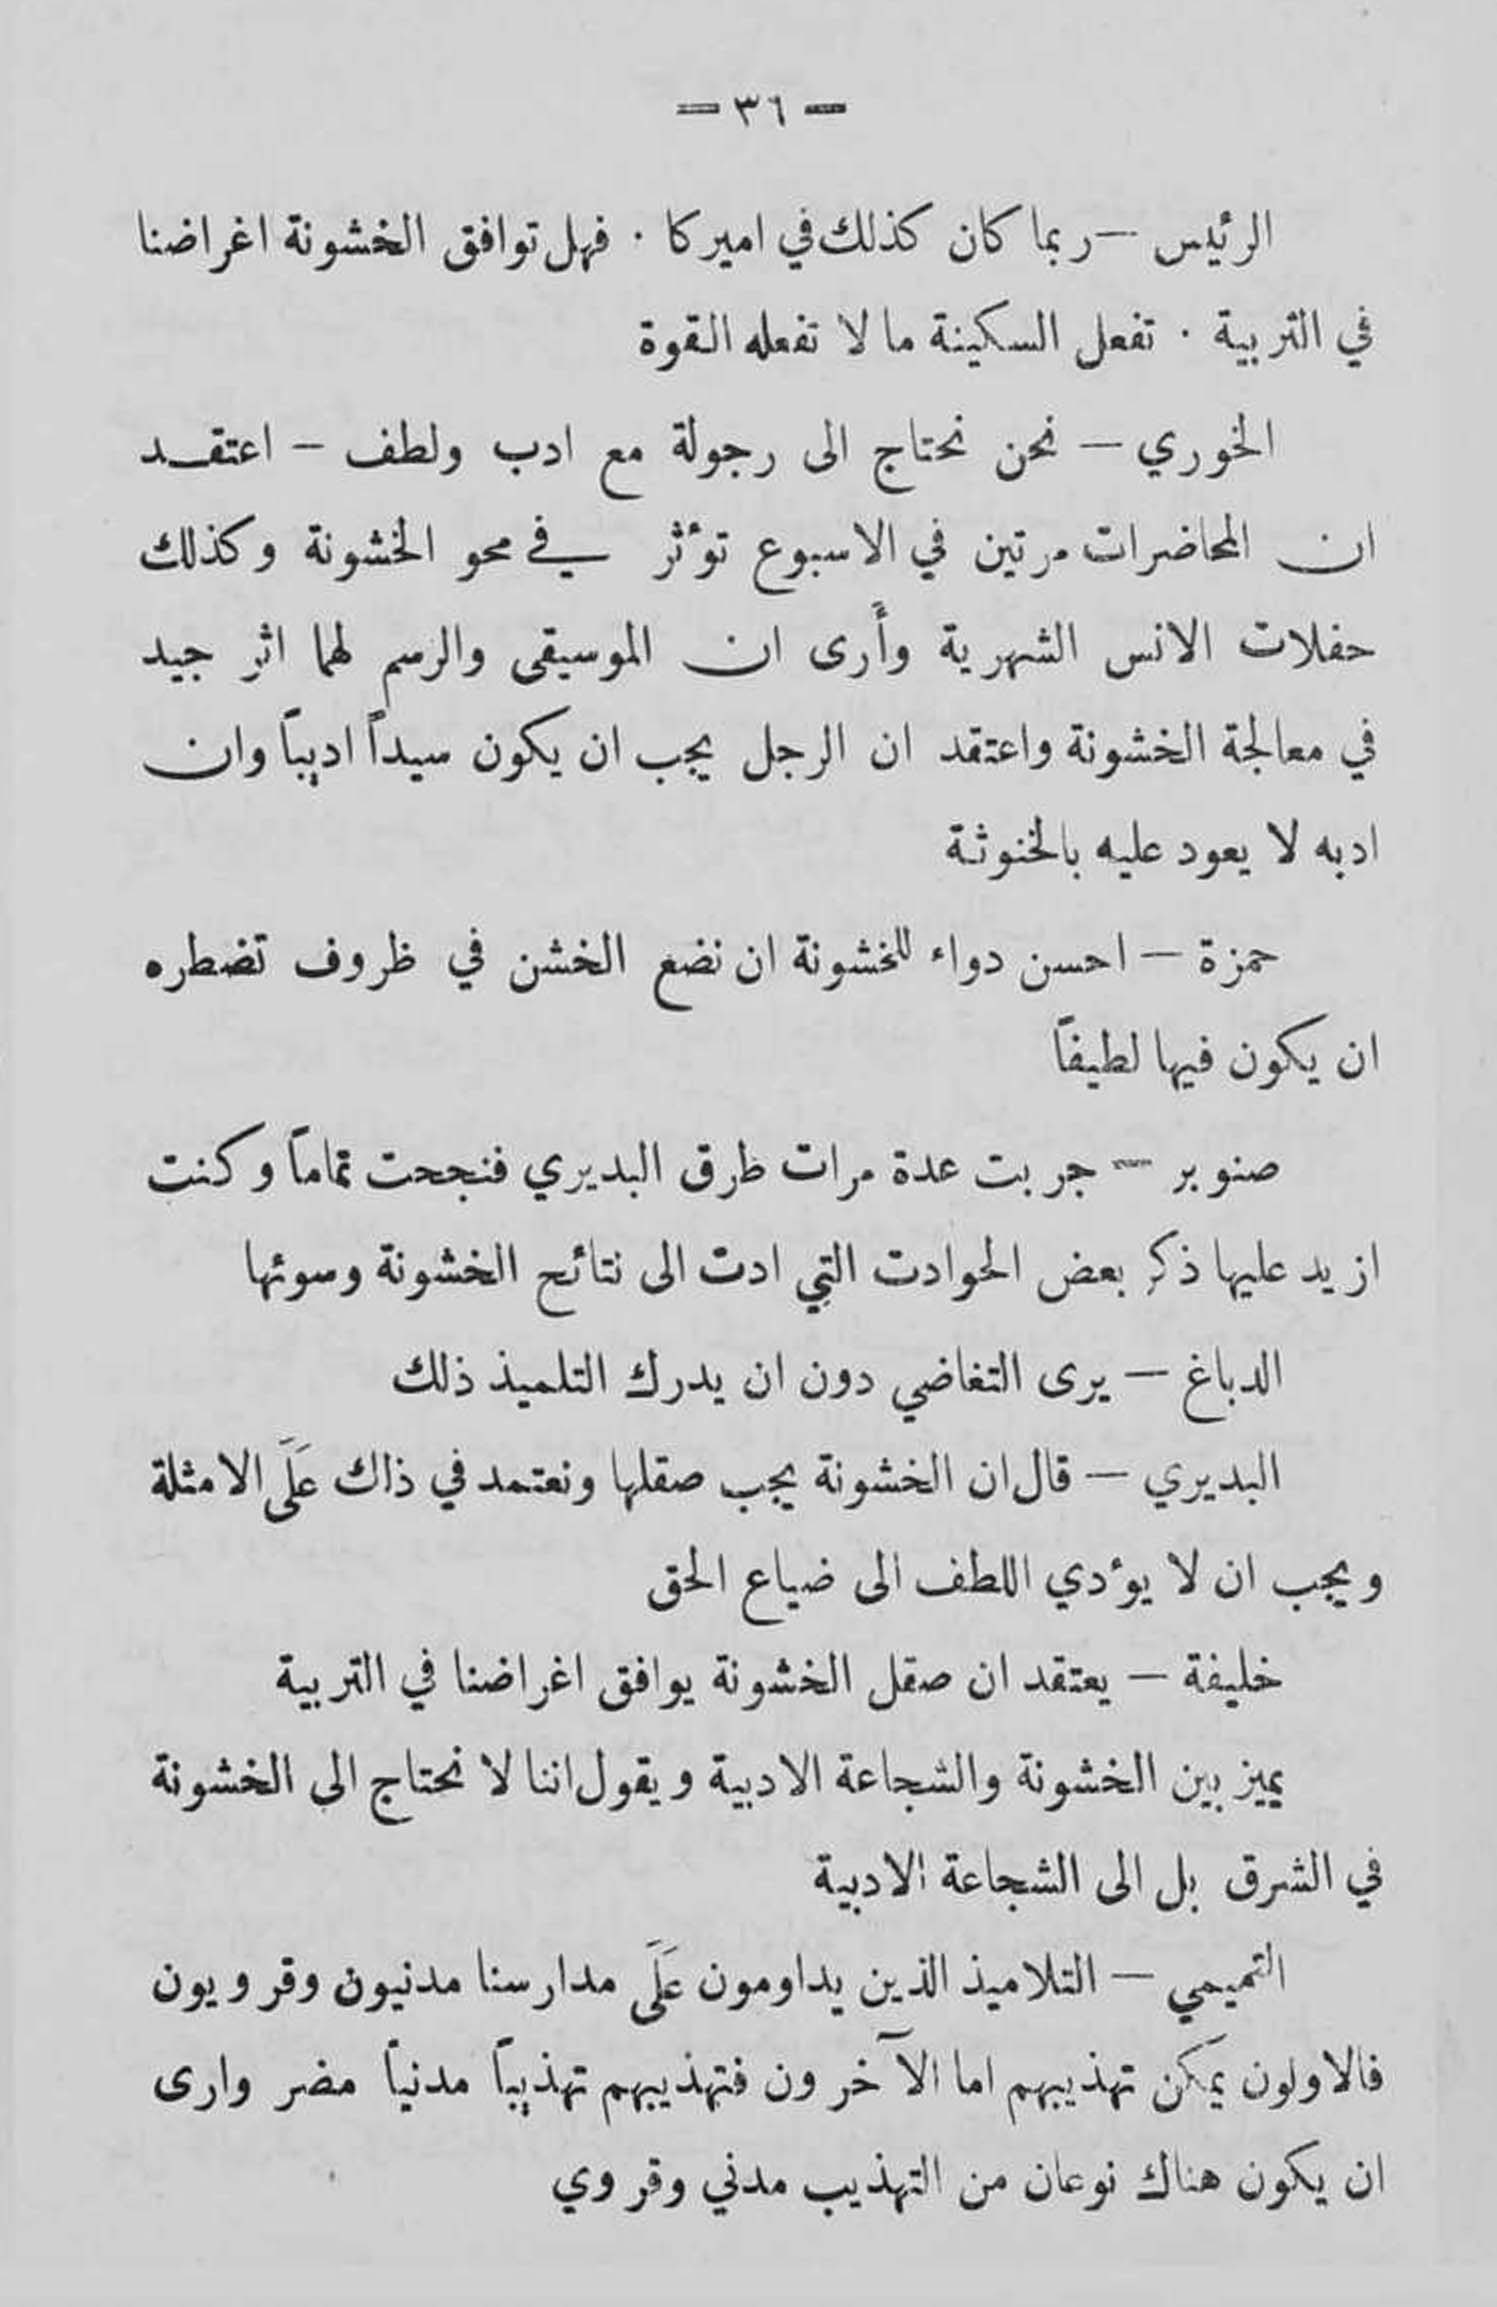 — ٣٦ —
الرئيس — ربما كان كذلك في اميركا . فهل توافق الخشونة اغراضنا
في التربية . تفعل السكينة ما لا تفعله القوة
الخوري — نحن نحتاج الى رجولة مع ادب ولطف — اعتقد
ان المحاضرات مرتين في الاسبوع تؤثر في محو الخشونة وكذلك
حفلات الانس الشهرية وأرى ان الموسيقى والرسم لهما اثر جيد
في معالجة الخشونة واعتقد ان الرجل يجب ان يكون سيداً اديباً وان
ادبه لا يعود عليه بالخنوثة
حمزة — احسن دواء للخشونة ان نضع الخشن في ظروف تضطره
ان يكون فيها لطيفاً
صنوبر — جربت عدة مرات طرق البديري فنجحت تماماً وكنت
ازيد عليها ذكر بعض الحوادت التي ادت الى نتائج الخشونة وسوئها
الدباغ — يرى التغاضي دون ان يدرك التلميذ ذلك
البديري — قال ان الخشونة يجب صقلها ونعتمد في ذاك عَلَى الامثلة
ويجب ان لا يؤدي اللطف الى ضياع الحق
خليفة — يعتقد ان صقل الخشونة يوافق اغراضنا في التربية
يميز بين الخشونة والشجاعة الادبية ويقول اننا لا نحتاج الى الخشونة
في الشرق بل الى الشجاعة الادبية
التميمي — التلاميذ الذين يداومون عَلَى مدارسنا مدنيون وقرويون
فالاولون يمكن تهذيبهم اما الآخرون فتهذيبهم تهذيباً مدنياً مضر وارى
ان يكون هناك نوعان من التهذيب مدني وقروي